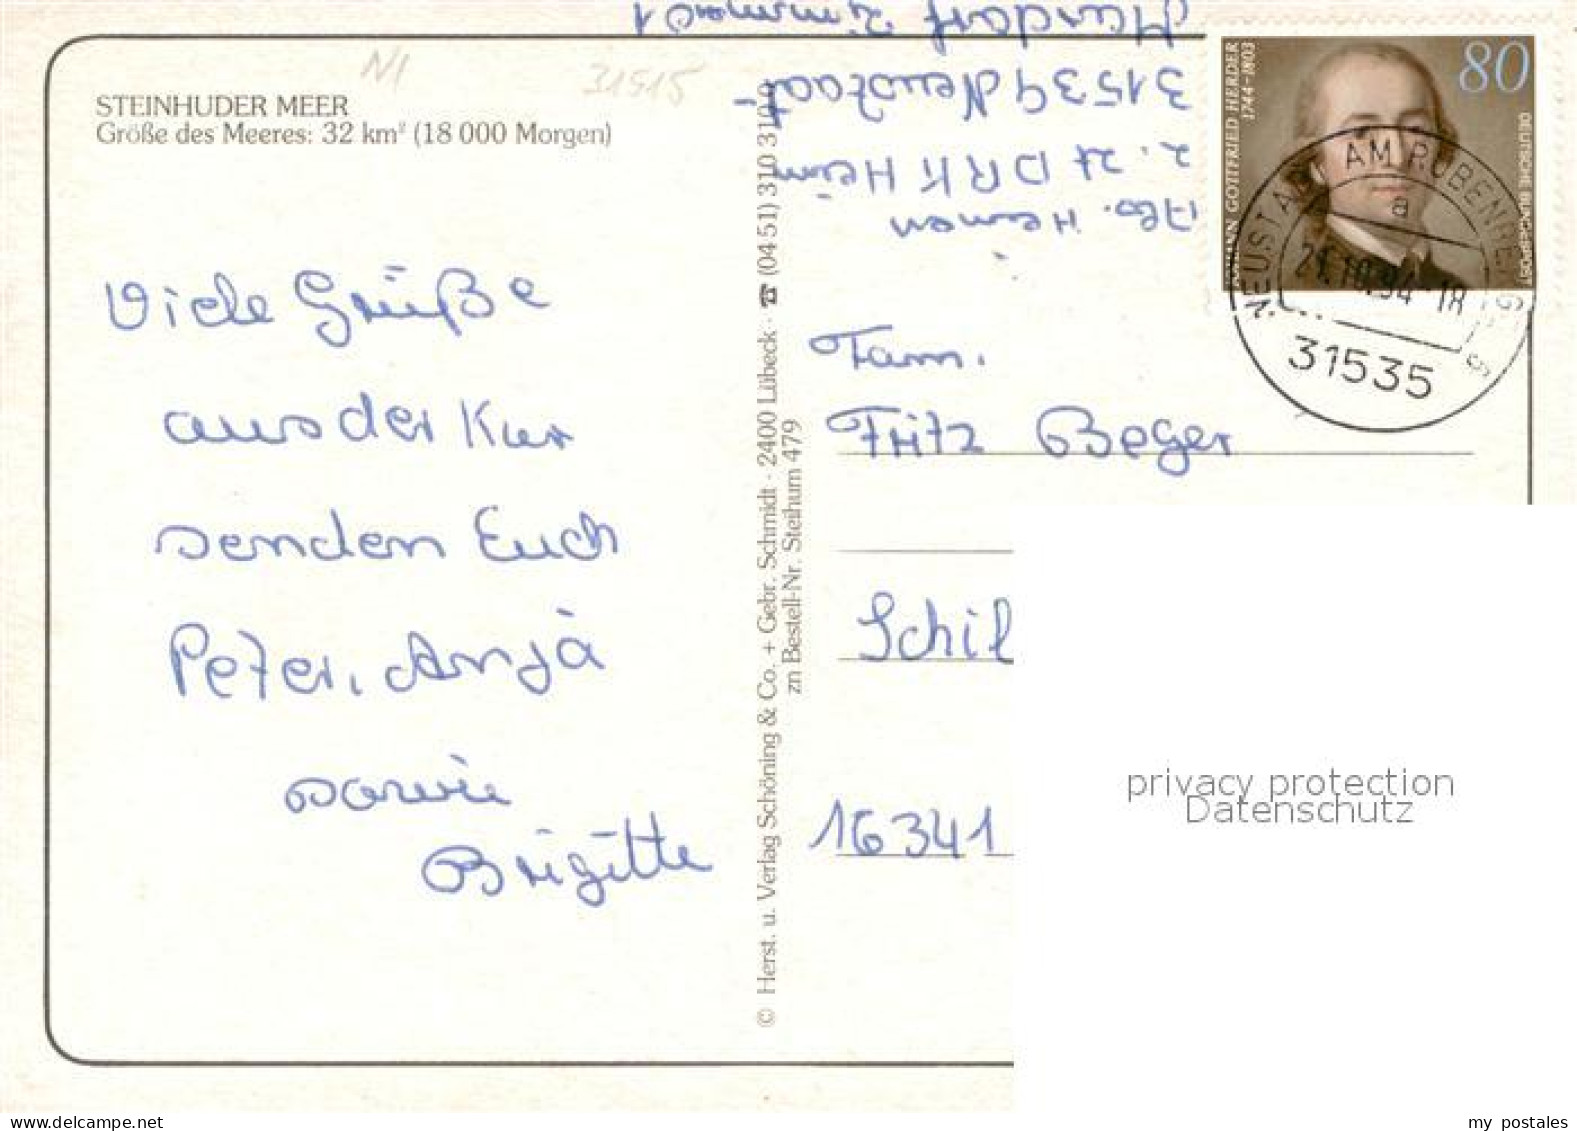 STEINHUDER MEER
Größe des Meeres: 32 km² (18 000 Morgen)
N1
31515
Viele Grüße
aus der Kur
senden Euch
Peter, Anja
sowie
Brigitte
© Herst. u. Verlag Schöning & Co. + Gebr. Schmidt · 2400 Lübeck · ☎ (04 51) 310 310
zn Bestell-Nr. Steihum 479
Abs. Hemen
z. Zt DRK Heim
31539 Neustadt-
Mardorf Zimmer 01
Fam.
Fritz Beger
Schil
16341
80
JOHANN GOTTFRIED HERDER
1744-1803
DEUTSCHE BUNDESPOST
NEUSTADT AM RÜBENBERGE
a
21.10.94-18
31535
privacy protection
Datenschutz
delcampe.net
my_postales